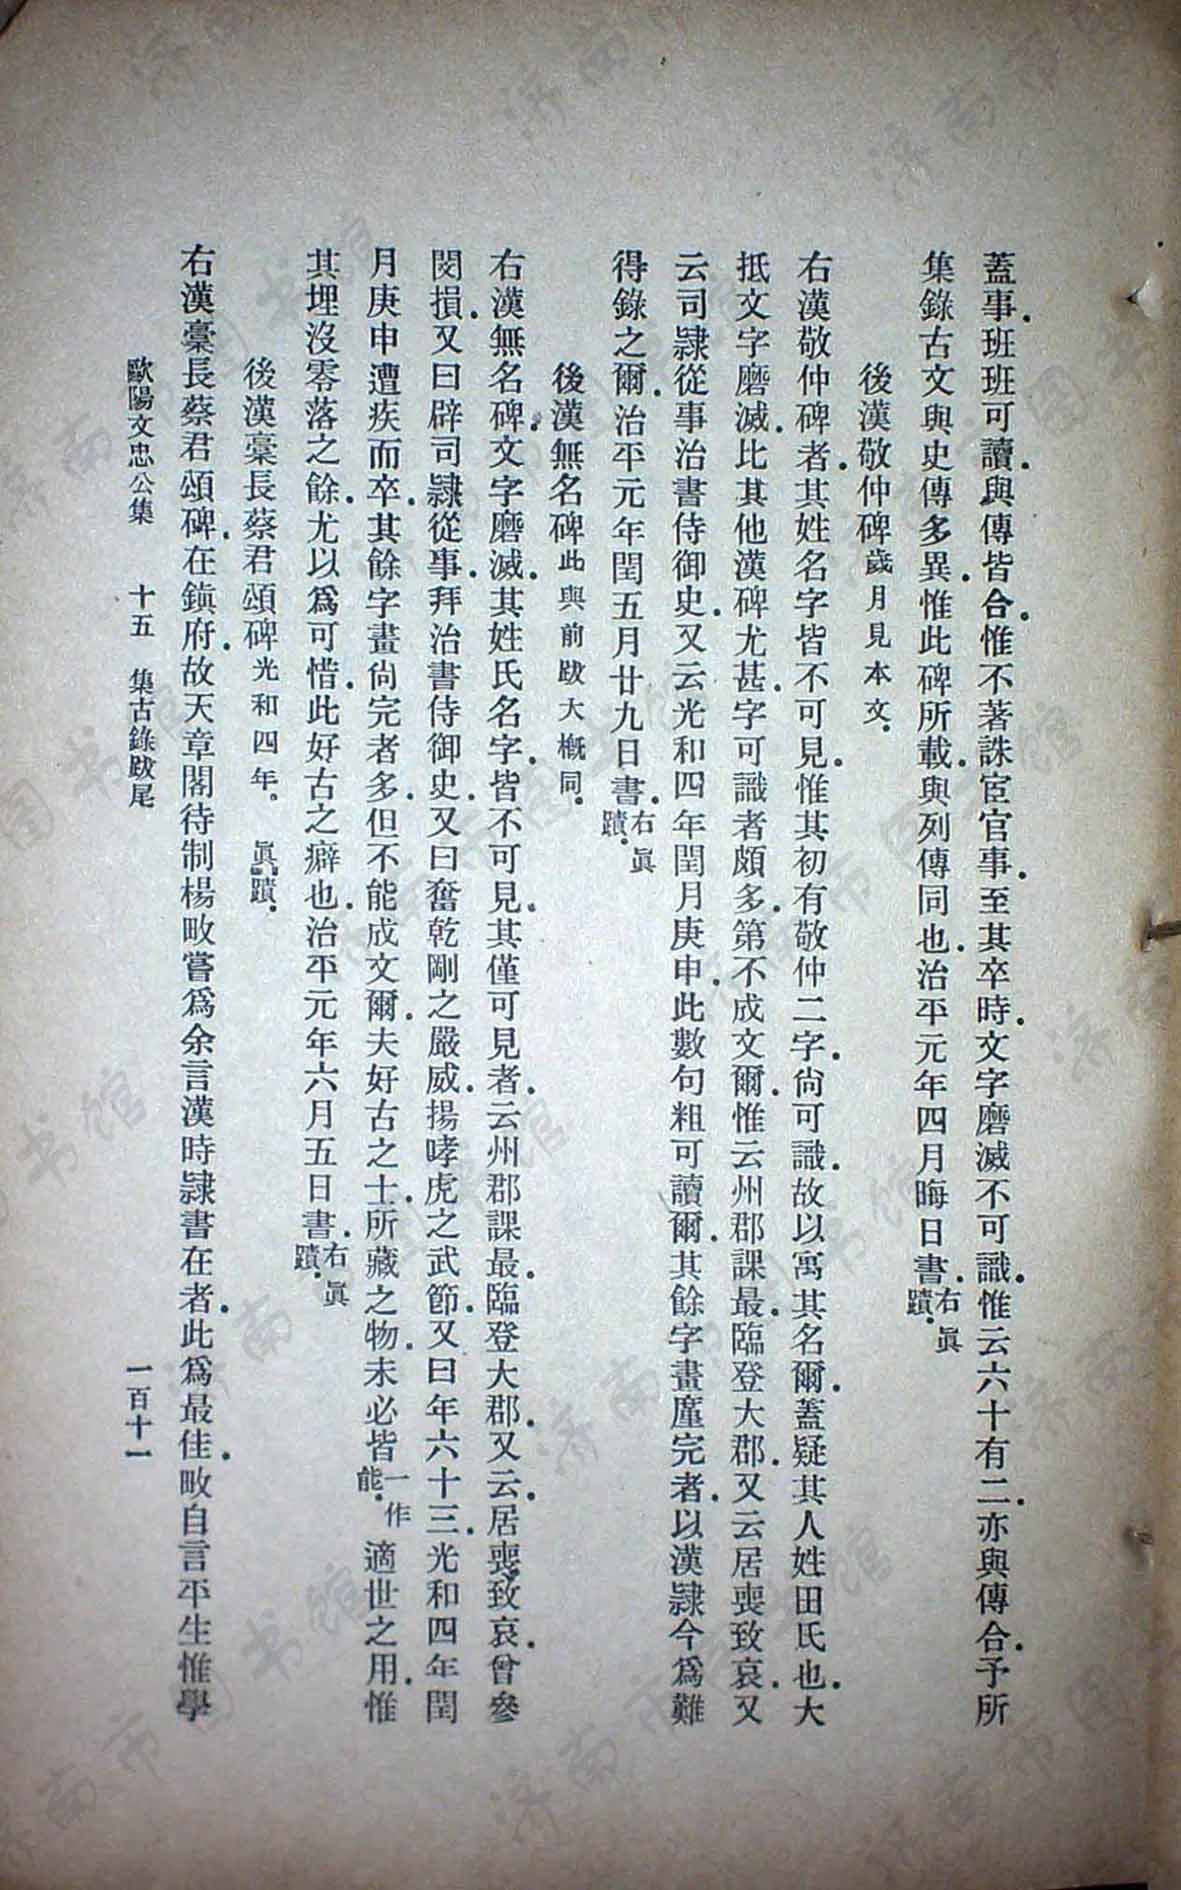 蓋事.班班可讀.與傳皆合.惟不著誅宦官事.至其卒時.文字磨滅不可識.惟云六十有二.亦與傳合.予所
集錄古文與史傳多異.惟此碑所載.與列傳同也.治平元年四月晦日書.右眞蹟.
後漢敬仲碑歲月見本文.
右漢敬仲碑者.其姓名字皆不可見.惟其初有敬仲二字.尙可識.故以寓其名爾.蓋疑其人姓田氏也.大
抵文字磨滅.比其他漢碑尤甚.字可識者頗多.第不成文爾.惟云州郡課最.臨登大郡.又云居喪致哀.又
云司隸從事治書侍御史.又云光和四年閏月庚申.此數句粗可讀爾.其餘字畫廑完者.以漢隸今爲難
得錄之爾.治平元年閏五月廿九日書.右眞蹟.
後漢無名碑此與前跋大槪同.
右漢無名碑.文字磨滅.其姓氏名字.皆不可見.其僅可見者.云州郡課最.臨登大郡.又云.居喪致哀.曾參
閔損.又曰辟司隸從事.拜治書侍御史.又曰奮乾剛之嚴威.揚哮虎之武節.又曰年六十三.光和四年閏
月庚申遭疾而卒.其餘字畫尙完者多.但不能成文爾.夫好古之士.所藏之物.未必皆一作能.適世之用.惟
其埋沒零落之餘.尤以爲可惜.此好古之癖也.治平元年六月五日書.右眞蹟.
後漢稾長蔡君頌碑光和四年。 眞蹟.
右漢稾長蔡君頌碑.在鎭府.故天章閣待制楊畋嘗爲余言漢時隸書在者.此爲最佳.畋自言平生惟學
歐陽文忠公集 十五 集古錄跋尾 一百十一